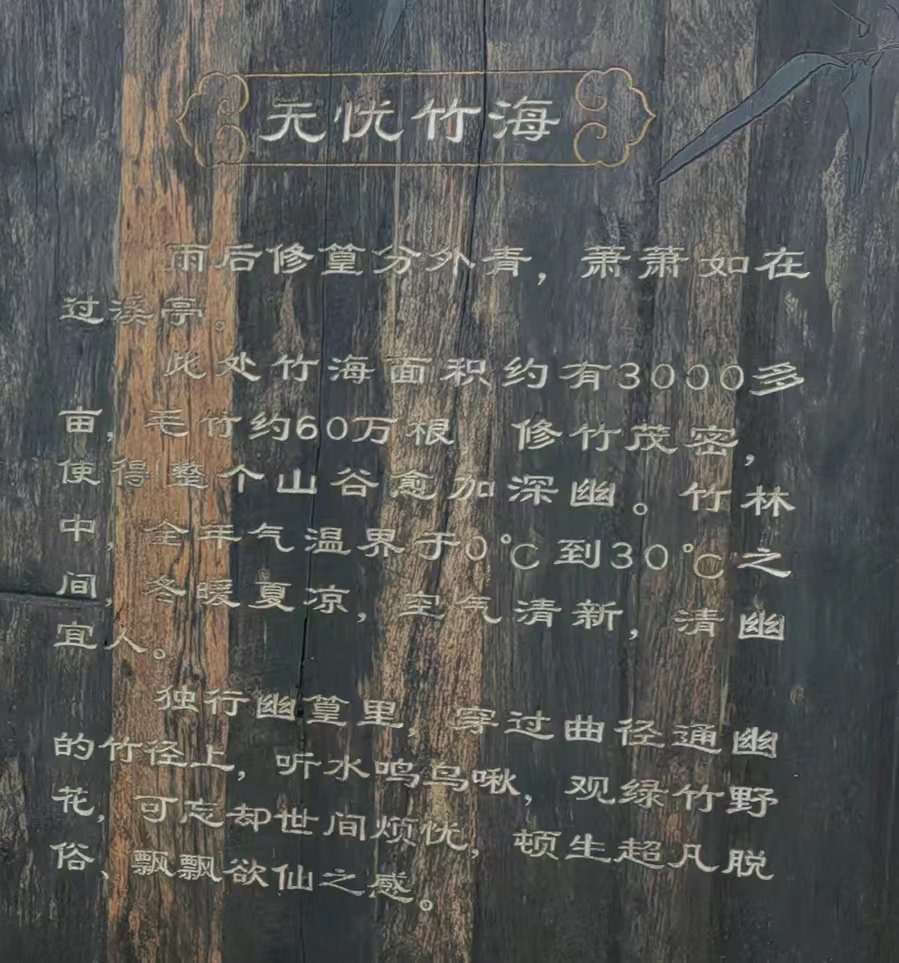 无忧竹海
雨后修篁分外青，萧萧如在
过溪亭。
此处竹海面积约有3000多
亩，毛竹约60万根 修竹茂密，
使得整个山谷愈加深幽。竹林
中，全年气温界于0℃到30℃之
间，冬暖夏凉，空气清新，清幽
宜人。
独行幽篁里，穿过曲径通幽
的竹径上，听水鸣鸟啾，观绿竹野
花，可忘却世间烦忧，顿生超凡脱
俗、飘飘欲仙之感。